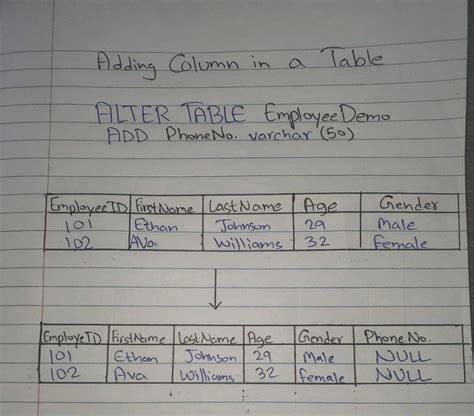 Adding Column in a Table
ALTER TABLE EmployeeDemo
ADD PhoneNo. varchar (50)
EmployeeID FirstName LastName Age Gender
101 Ethan Johnson 29 Male
102 Ava Williams 32 Female
EmployeID FirstName LastName Age Gender Phone No.
101 Ethan Johnson 29 Male NULL
102 Ava Williams 32 female NULL